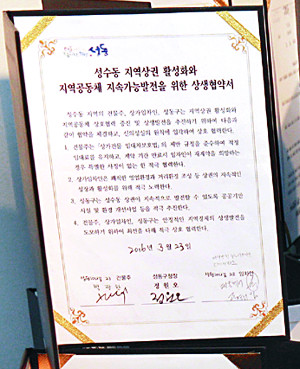 성수동 지역상권 활성화와
지역공동체 지속가능발전을 위한 상생협약서
성수동 지역의 건물주, 상가임차인, 성동구는 지역상권 활성화와
지역공동체 상호협력 증진 및 상생발전을 추진하기 위하여 다음과
같이 협약을 체결하고, 신의성실의 원칙에 입각하여 상호 협력한다.
1. 건물주는 「상가건물 임대차보호법」의 제반 규정을 준수하며 적정
임대료를 유지하고, 계약 기간 만료시 임차인이 재계약을 희망하는
경우 특별한 사정이 없는 한 적극 협력한다.
2. 상가임차인은 쾌적한 영업환경과 거리환경 조성 등 상권의 지속적인
성장과 활성화를 위해 적극 노력한다.
3. 성동구는 성수동 상권이 지속적으로 발전할 수 있도록 공공기반
시설 및 환경 개선사업 등을 적극 추진한다.
4. 건물주, 상가임차인, 성동구는 안정적인 지역경제의 상생발전을
도모하기 위하여 최선을 다해 적극 상호 협력한다.
2016년 3월 23일
건물주
성동구청장
임차인
정원오